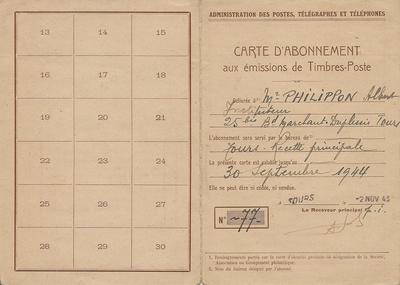 13 14 15
16 17 18
19 20 21
22 23 24
25 26 27
28 29 30
ADMINISTRATION DES POSTES, TÉLÉGRAPHES ET TÉLÉPHONES
CARTE D'ABONNEMENT
aux émissions de Timbres-Poste
Délivrée à¹ Mr PHILIPPON Albert
Instituteur
25 bis Bd Marchant-Duplessis Tours
L'abonnement sera servi par le bureau de²
Tours-Recette principale
La présente carte est valable jusqu'au
30 Septembre 1944
Elle ne peut être ni cédée, ni vendue.
A TOURS -2 NOV 43
Le Receveur principal
N° 77
1. Renseignements portés sur la carte d'identité produite ou désignation de la Société,
Association ou Groupement philatélique.
2. Nom du bureau désigné par l'abonné.